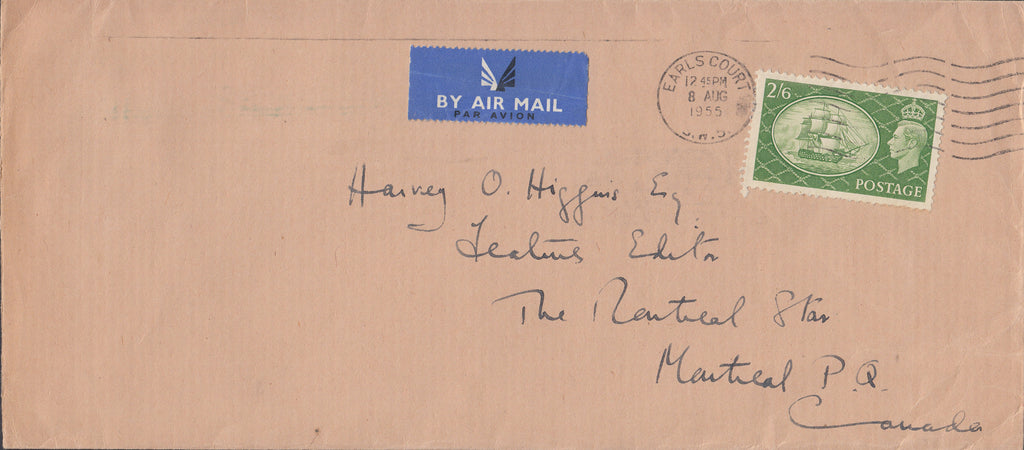 BY AIR MAIL
PAR AVION
EARLS COURT
12 45PM
8 AUG
1955
S.W.5
2/6
POSTAGE
Harvey O. Higgins Esq
Features Editor
The Montreal Star
Montreal P.Q.
Canada